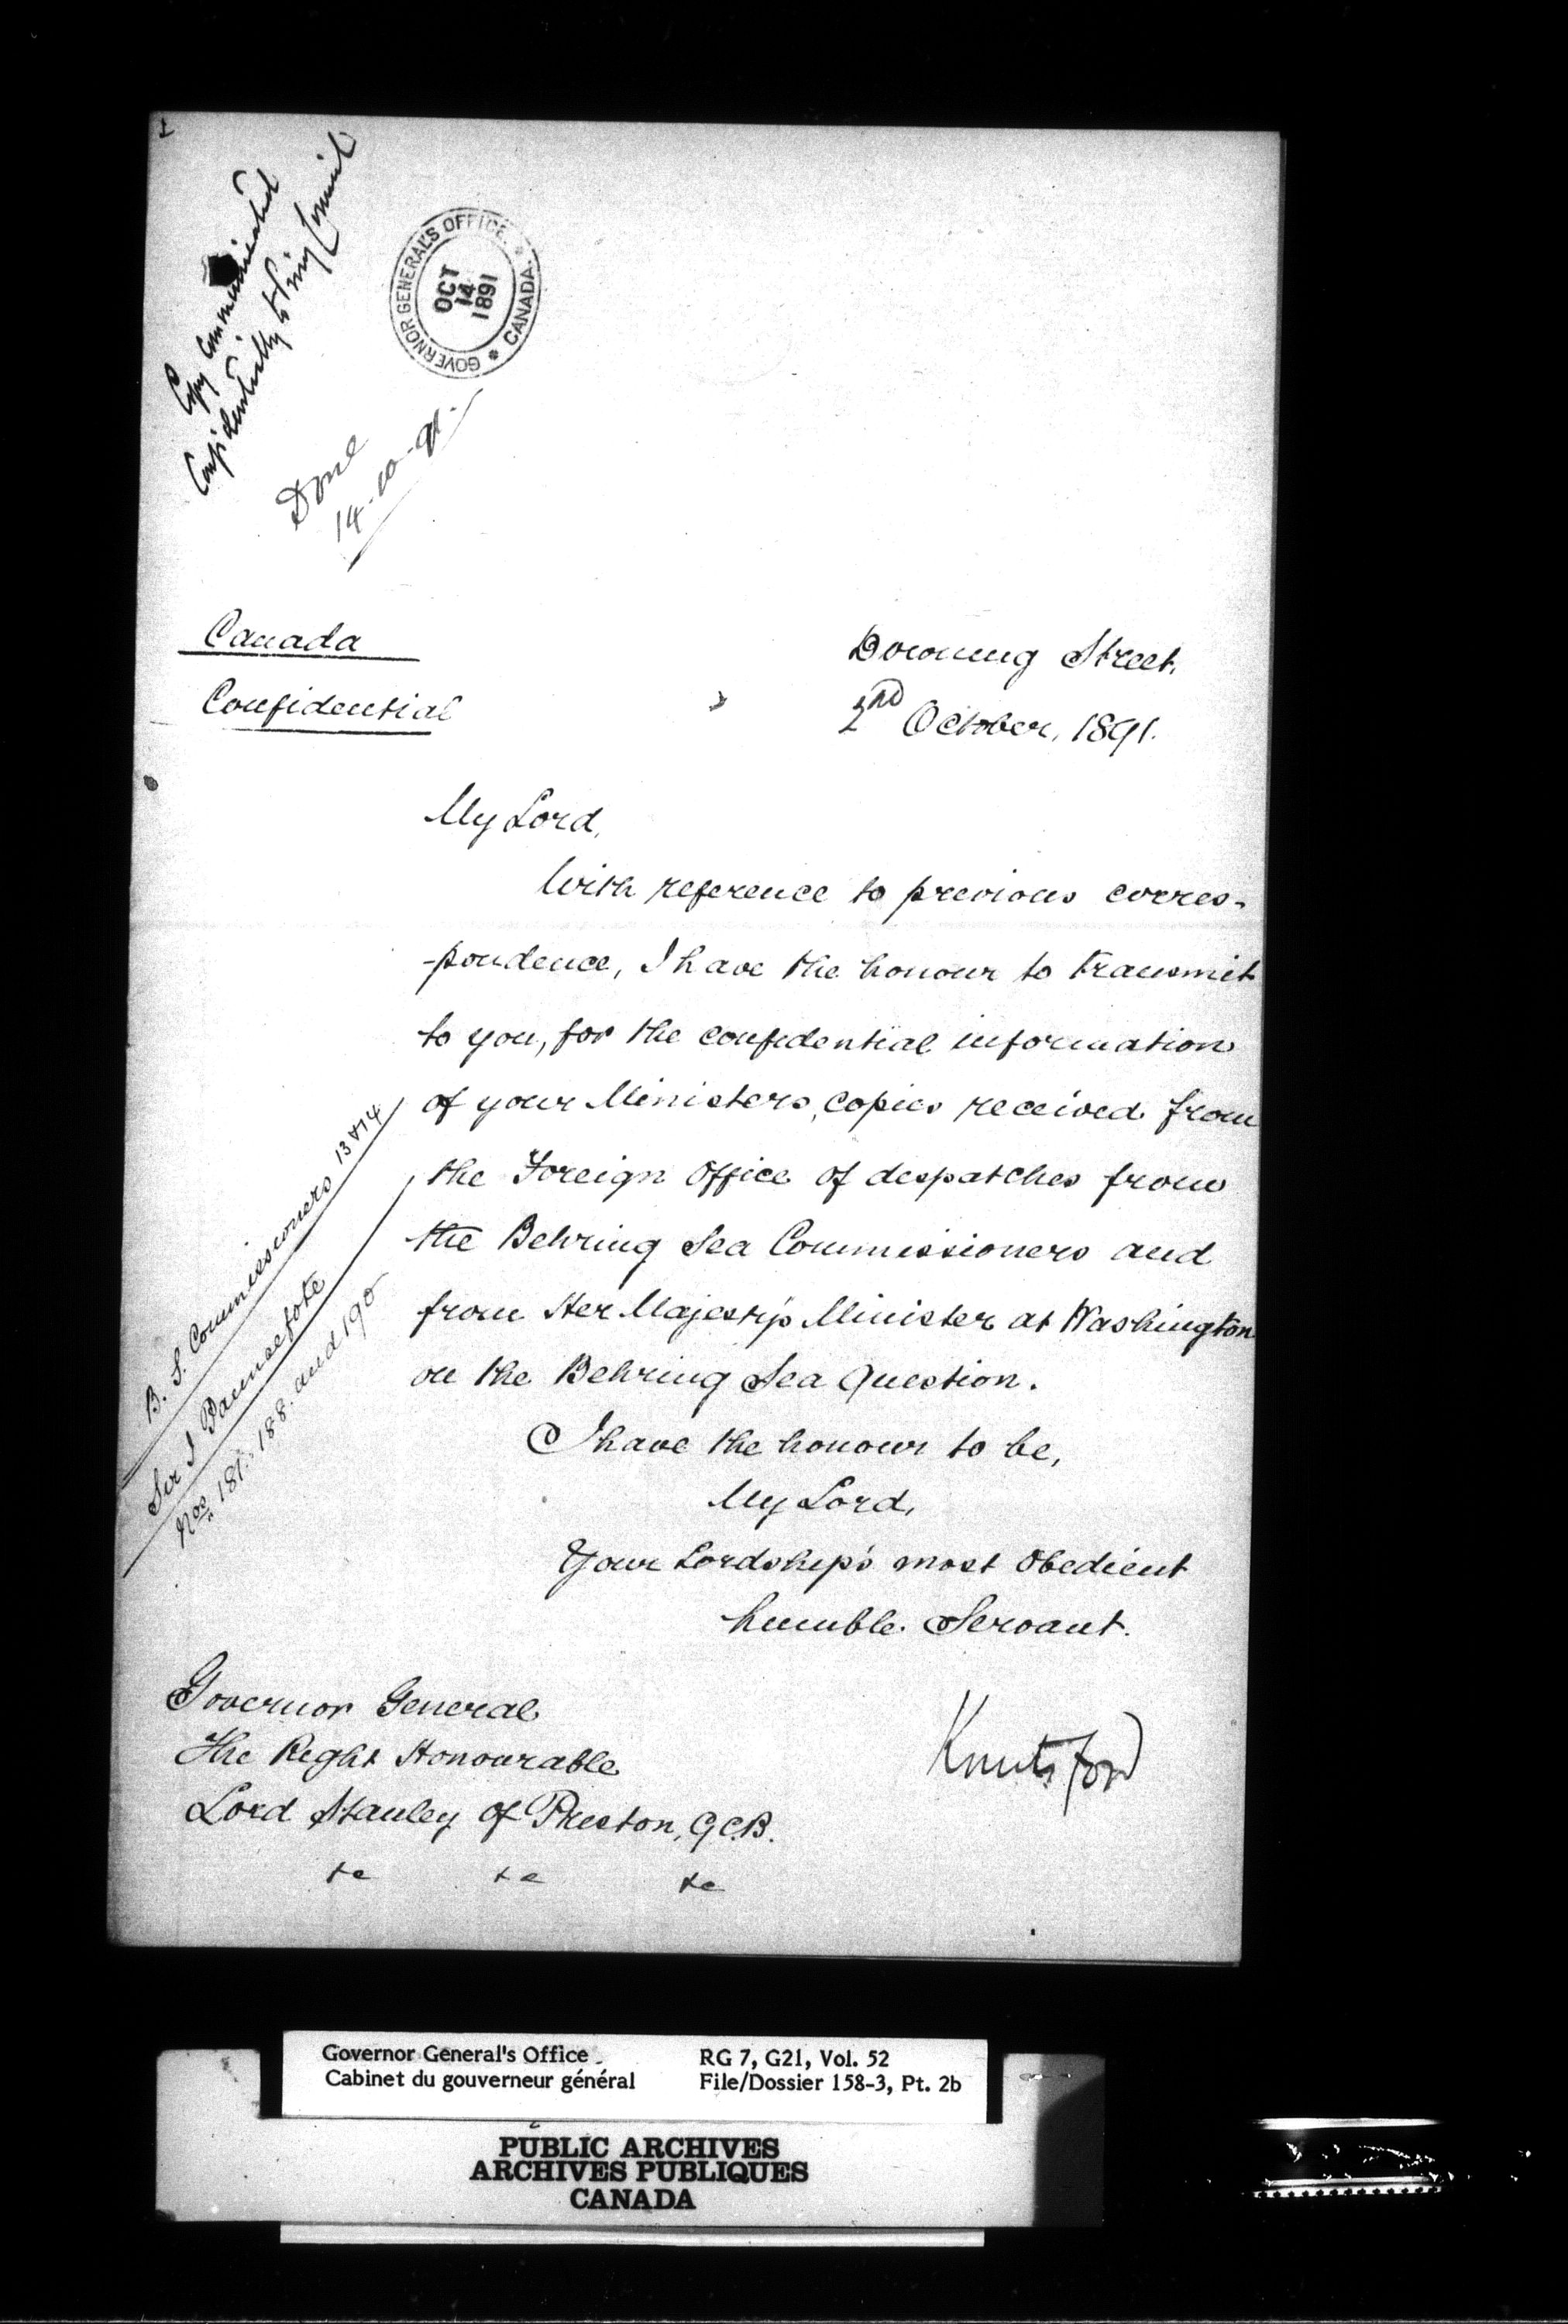 Copy communicated
Confidentially to Privy Council
GOVERNOR GENERAL'S OFFICE. * CANADA. *
OCT
14
1891
Done
14-10-91.
Canada
Confidential
Downing Street,
2nd October, 1891.
My Lord,
With reference to previous corres-
-pondence, I have the honour to transmit
to you, for the confidential information
of your Ministers, copies received from
the Foreign Office of despatches from
the Behring Sea Commissioners and
from Her Majesty's Minister at Washington
on the Behring Sea Question.
B. S. Commissioners 13 & 14
Sir J Pauncefote
Nos. 187. 188. and 190
I have the honour to be,
My Lord,
Your Lordship's most Obedient
humble Servant.
Knutsford
Governor General
The Right Honourable
Lord Stanley of Preston, G.C.B.
&c &c &c
Governor General's Office
Cabinet du gouverneur général
RG 7, G21, Vol. 52
File/Dossier 158-3, Pt. 2b
PUBLIC ARCHIVES
ARCHIVES PUBLIQUES
CANADA